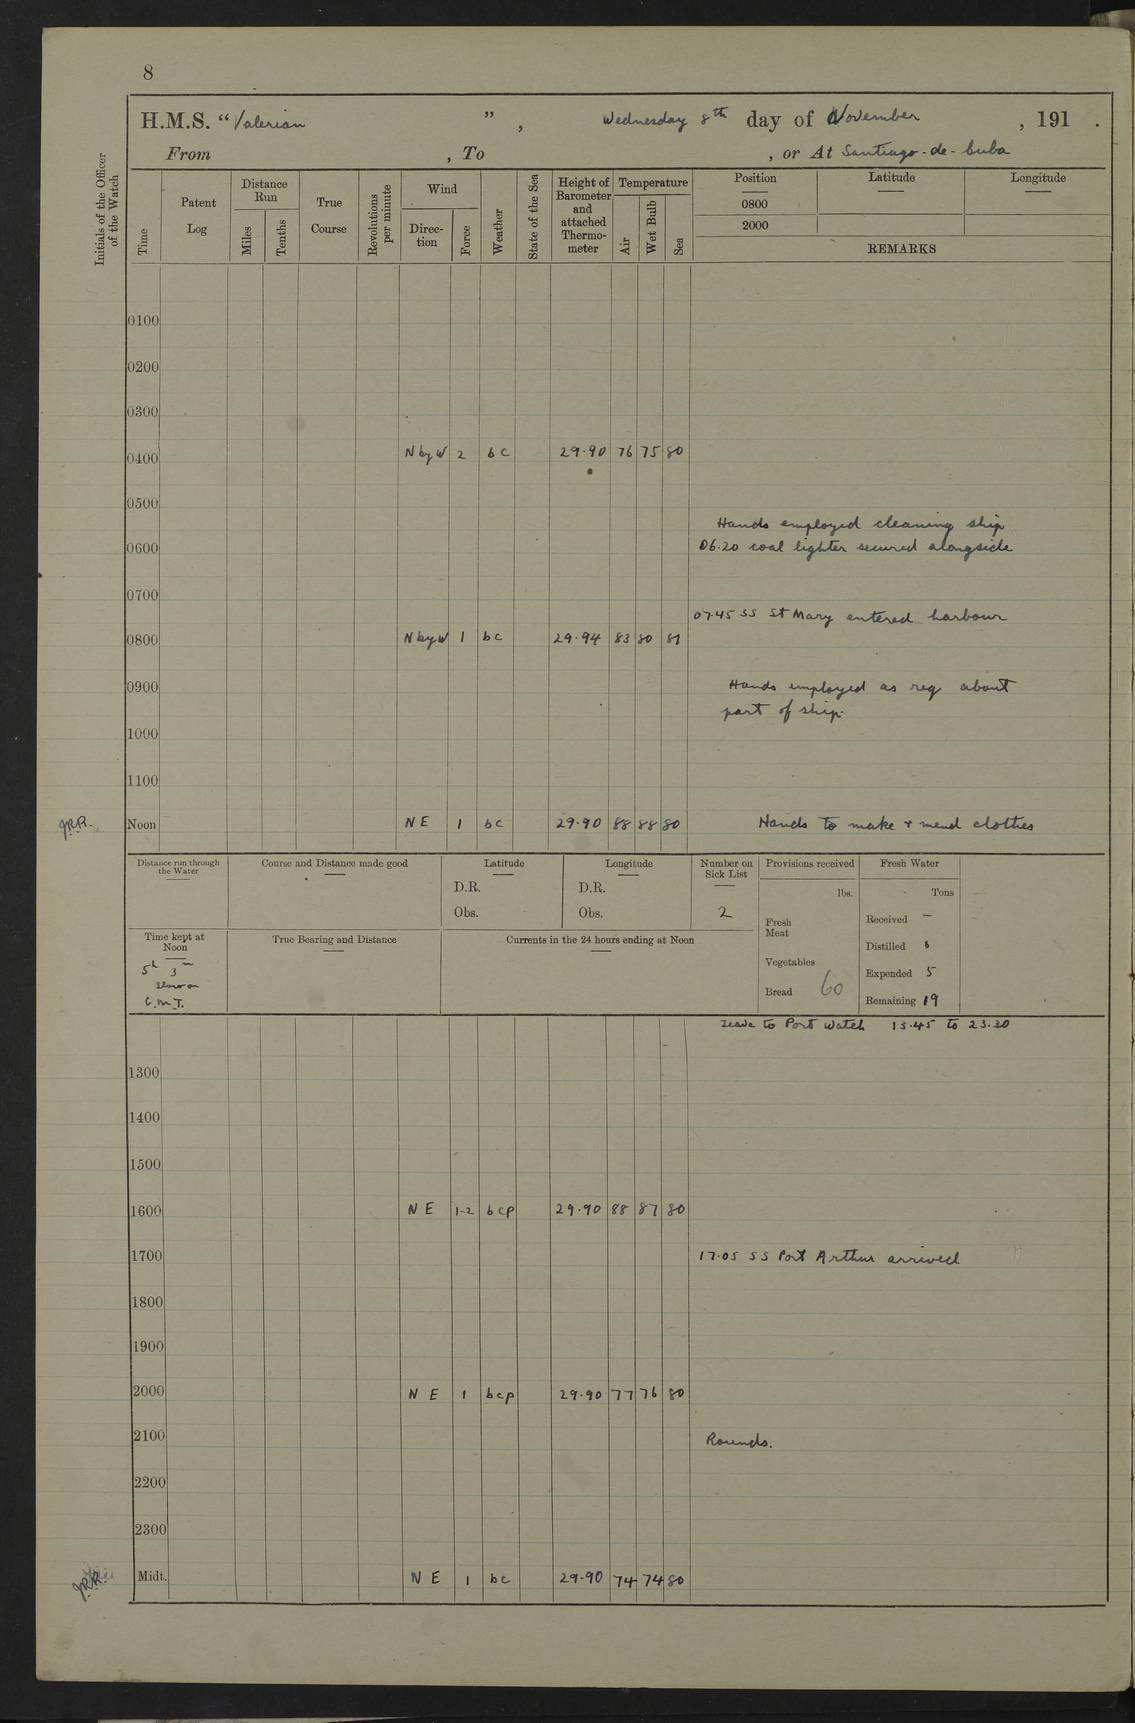 8
H.M.S. "Valerian ", Wednesday 8th day of November , 191 .
From , To , or At Santiago-de-Cuba
Initials of the Officer of the Watch
Time
Patent Log
Distance Run
Miles
Tenths
True Course
Revolutions per minute
Wind
Direction
Force
Weather
State of the Sea
Height of Barometer and attached Thermometer
Temperature
Air
Wet Bulb
Sea
Position
Latitude
Longitude
0800
2000
REMARKS
0100
0200
0300
0400 N by W 2 bc 29.90 76 75 80
0500
Hands employed cleaning ship
0600 06.20 coal lighter secured alongside
0700
07.45 SS St Mary entered harbour
0800 N by W 1 bc 29.94 83 80 81
0900 Hands employed as req about
part of ship.
1000
1100
Noon NE 1 bc 29.90 88 88 80 Hands to make + mend clothes
Distance run through the Water
Course and Distance made good
Latitude
D.R.
Obs.
Longitude
D.R.
Obs.
Number on Sick List
2
Provisions received
lbs.
Fresh Meat
Vegetables
Bread 60
Fresh Water
Tons
Received –
Distilled 6
Expended 5
Remaining 19
Time kept at Noon
5h 3m
slow on
G.M.T.
True Bearing and Distance
Currents in the 24 hours ending at Noon
Leave to Port Watch 13.45 to 23.30
1300
1400
1500
1600 NE 1-2 bcp 29.90 88 87 80
1700 17.05 SS Port Arthur arrived
1800
1900
2000 NE 1 bcp 29.90 77 76 80
2100 Rounds.
2200
2300
Midt. NE 1 bc 29.90 74 74 80